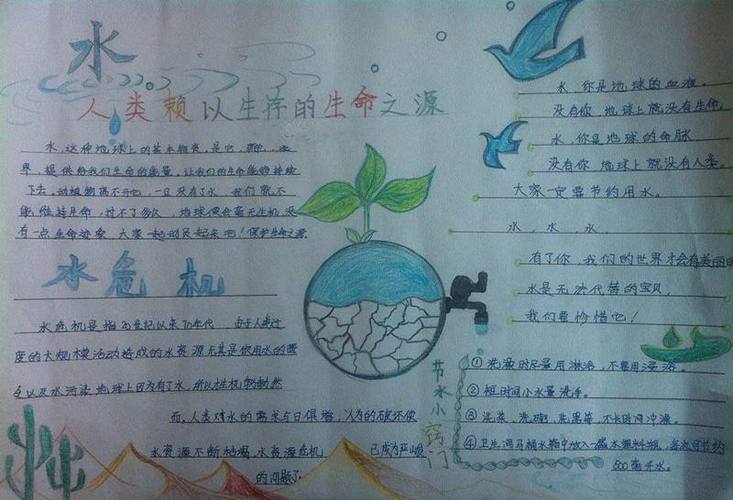 水
人类赖以生存的生命之源
水,这种地球上的基本物质,是它,
界,提供给我们生命的能量,让我们的生命能够持续
下去,动植物离不开它,一旦没有了水,我们就不
能维持生命,过不了多久,地球便会毫无生机,没
有一点生命迹象,大家一起动员起来吧!保护生命之源
水危机
水危机是指20世纪以来70年代,由于人类过
度的大规模活动造成的水资源尤其是饮用水的匮
乏以及水污染,地球上因为有了水,所以生机勃勃然
而,人类对水的需求与日俱增,人为的破坏使
水资源不断枯竭,水资源危机 已成为严峻
的问题了。
水,你是地球的血液。
没有你,地球上就没有生命。
水,你是地球的命脉
没有你,地球上就没有人类。
大家一定要节约用水。
水,水,水,
有了你,我们的世界才会有美丽
水是无法代替的宝贝,
我们要珍惜它!
节水小窍门
①洗澡时尽量用淋浴,不要用浸浴。
②短时间小水量洗手。
③洗菜、洗碗、洗果等,不长时间冲洗。
④卫生间马桶水箱中放入一瓶水塑料瓶,每次可节约
600毫升水。